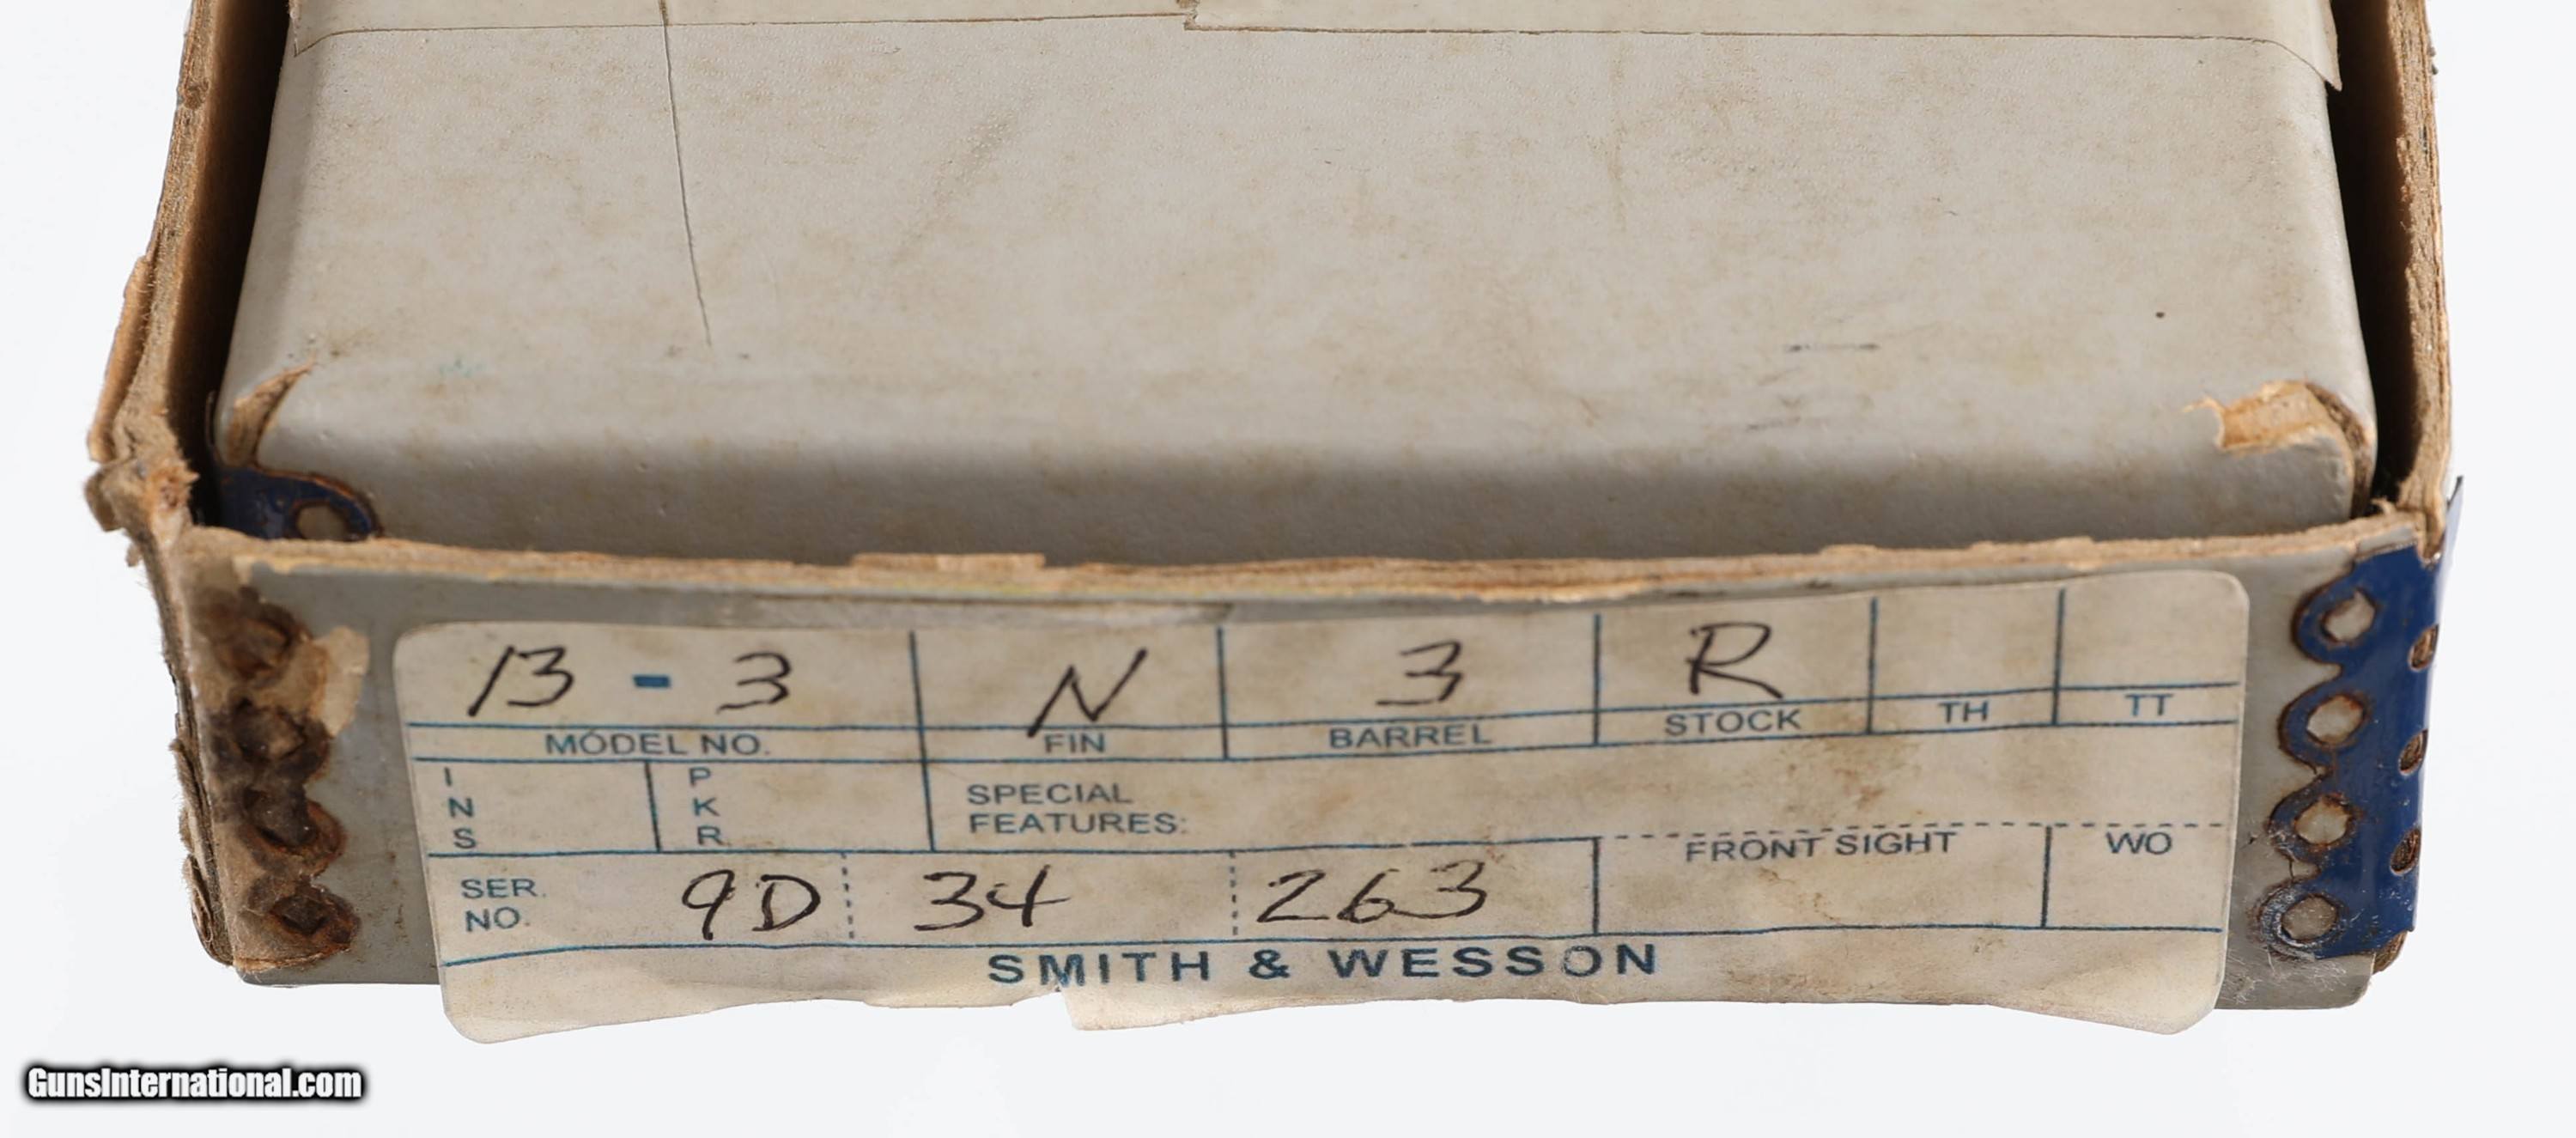 13 - 3 N 3 R
MODEL NO. FIN BARREL STOCK TH TT
INS PKR SPECIAL
FEATURES:
SER. NO. 9D 34 263 FRONT SIGHT WO
SMITH & WESSON
GunsInternational.com